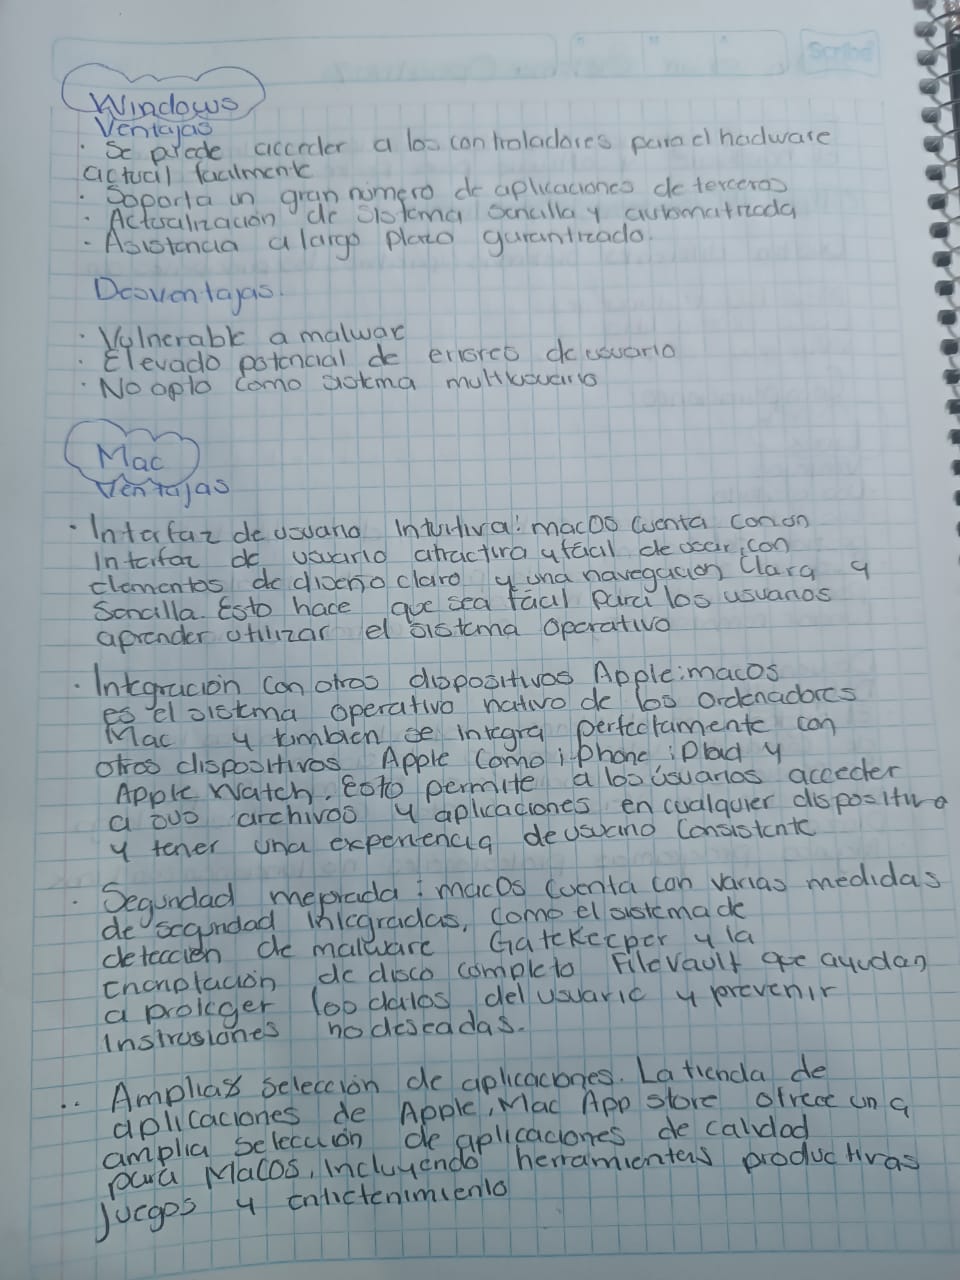 Scribe
Windows
Ventajas
· Se puede acceder a los controladores para el hadware
actual facilmente
· Soporta un gran número de aplicaciones de terceros
· Actualización de sistema sencilla y automatizada
· Asistencia a largo plazo garantizado.
Desventajas.
· Vulnerable a malwar
· Elevado potencial de errores de usuario
· No apto como sistema multiusuario
Mac
Ventajas
· Interfaz de usuario Intuitiva: macOS cuenta con un
Interfaz de usuario atractiva y fácil de usar, con
elementos de diseño claro y una navegación Clara y
Sencilla. Esto hace que sea fácil para los usuarios
aprender utilizar el sistema operativo
· Integración con otros dispositivos Apple: macos
es el sistema operativo nativo de los ordenadores
Mac y tambien se integra perfectamente con
otros dispositivos Apple como iPhone iPad y
Apple Watch. Esto permite a los usuarios acceder
a sus archivos y aplicaciones en cualquier dispositivo
y tener una experiencia de usuario consistente
· Seguridad meprada: macOS cuenta con varias medidas
de seguridad integradas, como el sistema de
detección de malware Gatekeeper y la
de disco completo FileVault que ayudan
a proteger los datos del usuario y prevenir
Instrusiones no deseadas.
·. Amplias selección de aplicaciones. La tienda de
aplicaciones de Apple, Mac App store ofrece una
amplia selección de aplicaciones de calidad
para MacOS, Incluyendo herramientas productivas
juegos y entretenimiento